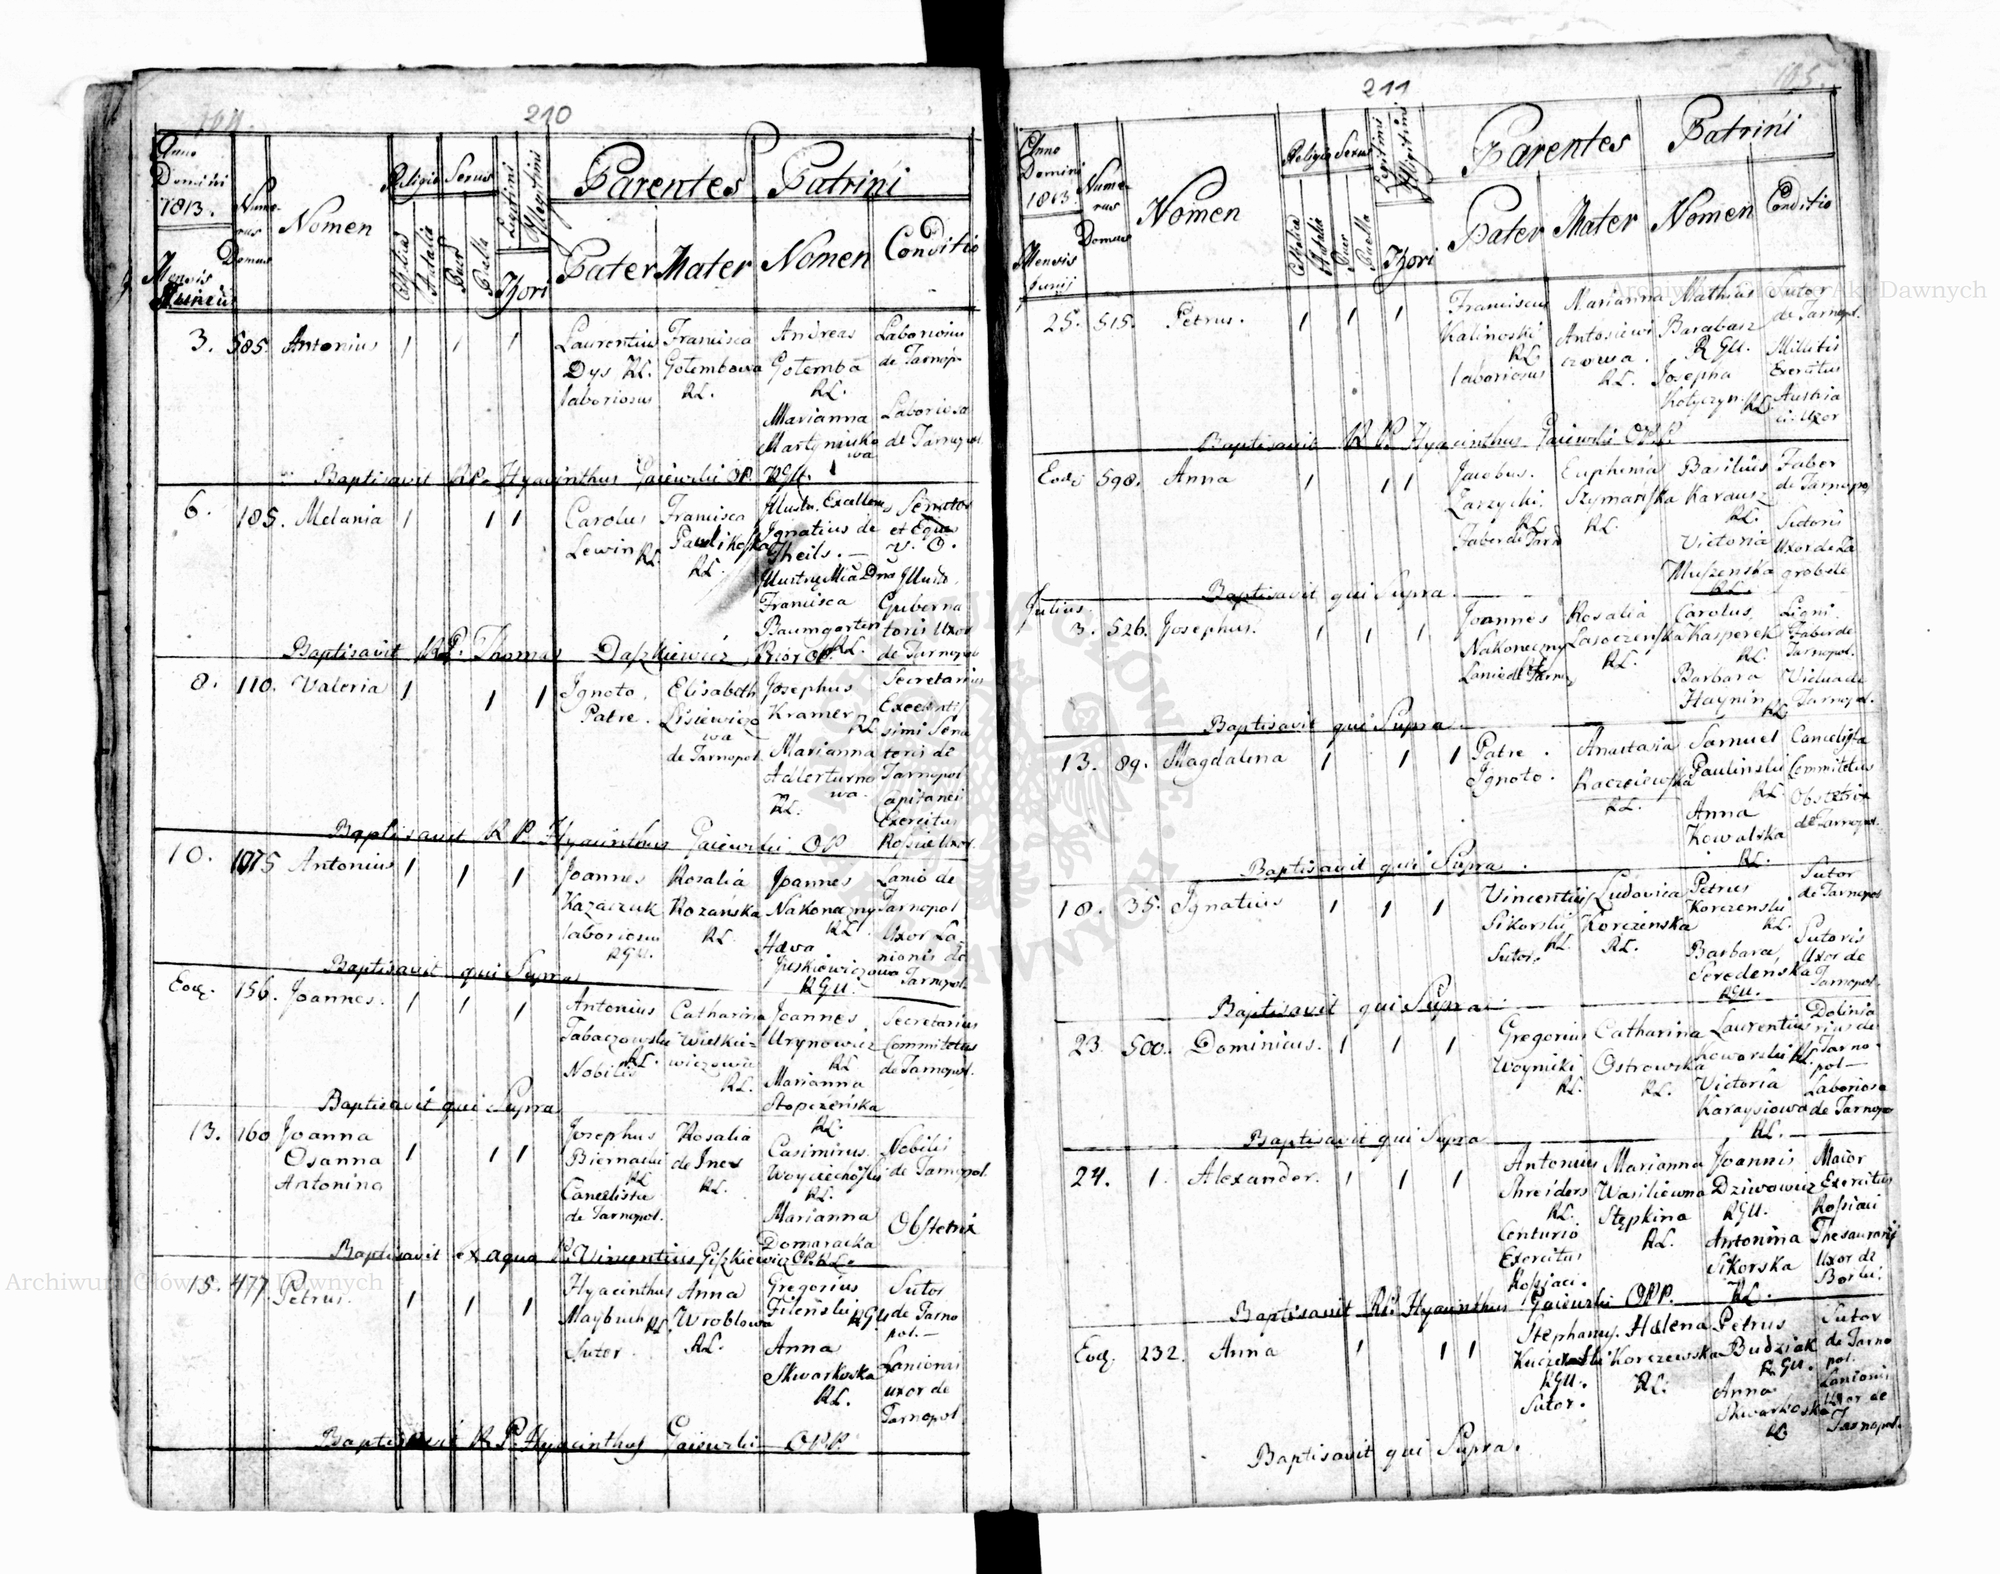 104.
210
Anno Domini 1813.
Mensis Junius
Numerus Domus
Nomen
Religio
Sexus
Catholica
Aut alia
Puer
Puella
Legitimi
Illegitimi
Thori
Parentes
Patrini
Pater
Mater
Nomen
Conditio
3. 585. Antonius 1 1 1
Laurentius Dys RL. laboriosus
Francisca Gołembowa RL.
Andreas Gołemba RL.
Marianna Martyniukowa RGU.
Laboriosus de Tarnop.
Laboriosa de Tarnopol.
Baptisavit RP. Hyacinthus Gaiewski OP.
6. 185. Melania 1 1 1
Carolus Lewin RL.
Francisca RL.
Illustr. Excellens Ignatius de Theils. —
Francisca Baumgarten RL.
Senator et Eques
Guberna toris Uxor de Tarnopol
Baptisavit RP. Thomas Daszkiewicz Prior OP.
8. 110. Valeria 1 1 1
Ignoto Patre.
Elisabeth Lisiewiczowa de Tarnopol
Josephus Kramer RL
Marianna RL.
Secretarius Excelentissimi Senatoris de Tarnopol
Capitanei Exercitus Rossiae Uxor.
Baptisavit R P. Hyacinthus Gaiewski OP
10. 1075 Antonius 1 1 1
Joannes Kazaczuk laboriosus RGU.
Rosalia Rozańska RL.
Joannes Nakoneczny RL.
Hava RGU.
Lanio de Tarnopol
Uxor Lanionis de Tarnopol.
Baptisavit qui Supra
Eod. 156. Joannes. 1 1 1
Antonius Tabaczowski RL. Nobilis
Catharina RL.
Joannes Urynowicz RL
Marianna Stopczeńska RL.
Secretarius Commitetus de Tarnopol.
Baptisavit qui Supra
13. 160 Joanna Osanna Antonina 1 1 1
Josephus Biernacki RL Cancelista de Tarnopol.
Rosalia de Ines RL.
Casimirus Woyciechoski RL.
Marianna Domaracka
Nobilis de Tarnopol.
Obstetrix
Baptisavit ex aqua P. Vincentius OP. RL.
15. 477. Petrus. 1 1 1
Hyacinthus Maybruk RL. Sutor.
Anna Wroblowa RL.
Gregorius Fileński RGU
Anna Skwarkoska RL.
Sutor de Tarnopol. —
Lanionis uxor de Tarnopol
Baptisavit R P. Hyacinthus Gaiewski OPP.
105.
211
Anno Domini 1813
Mensis Junij
Numerus Domus
Nomen
Religio
Sexus
Catholica
Aut alia
Puer
Puella
Legitimi
Illegitimi
Thori
Parentes
Patrini
Pater
Mater
Nomen
Conditio
25. 515. Petrus. 1 1 1
Franciscus Kalinoski RL. laboriosus
Marianna Antosiewiczowa. RL.
Mathias Barabasz RGU.
Josepha RL.
Sutor de Tarnopol.
Millitis Exercitus Austriaci. Uxor
Baptisavit R P. Hyacinthus Gaiewski OPP.
Eod. 598. Anna 1 1 1
Jacobus. Zarzycki. RL. Faber de Tarn
Euphemia Szymańska RL.
Basilius Karausz RL.
Victoria Muszenska RL.
Faber de Tarnopol
Sutoris Uxor de Zagrobele
Baptisavit qui Supra.
Julius.
3. 526. Josephus. 1 1 1
Joannes Nakoneczny Lanio de Tarn.
Rosalia RL.
Carolus Kasperek RL.
Barbara Haynin RL
Ligni Faber de Tarnopol.
Vidua de Tarnopol.
Baptisavit qui Supra
13. 89. Magdalena 1 1 1
Patre Ignoto.
Anastasia RL.
Samuel Paulinski RL
Anna Kowalska RL.
Cancelista Commitetus
Obstetrix de Tarnopol.
Baptisavit qui Supra.
18. 35. Ignatius 1 1 1
Vincentius Sikorski RL. Sutor.
Ludovica Korczenska RL.
Petrus Korczenski RL.
Barbara Seredenska RGU.
Sutor de Tarnopol
Sutoris Uxor de Tarnopol.
Baptisavit qui Supra.
23. 500. Dominicus. 1 1 1
Gregorius Woynicki RL.
Catharina Ostrowska RL.
Laurentius RL.
Victoria RL. —
Doliniarius de Tarnopol —
Laboriosa de Tarnopo
Baptisavit qui Supra
24. 1. Alexander. 1 1 1
Antonius Shreiders RL. Centurio Exercitus Rossiaci.
Marianna Wasiliewna Stępkina RL.
Joannis RGU.
Antonina Sikorska RL.
Maior Exercitus Rossiaci
Thesaurarij Uxor de
Baptisavit RP. Hyacinthus Gaiewski OPP.
Eod. 232. Anna 1 1 1
Stephanus. RGU. Sutor.
Helena Korczewska RL.
Petrus Budziak RGU.
Anna Skwarkoska RL.
Sutor de Tarnopol.
Lanionis Uxor de Tarnopol.
Baptisavit qui Supra.
Archiwum Główne Akt Dawnych
Archiwum Główne Akt Dawnych
ARCHIWUM GŁÓWNE AKT DAWNYCH